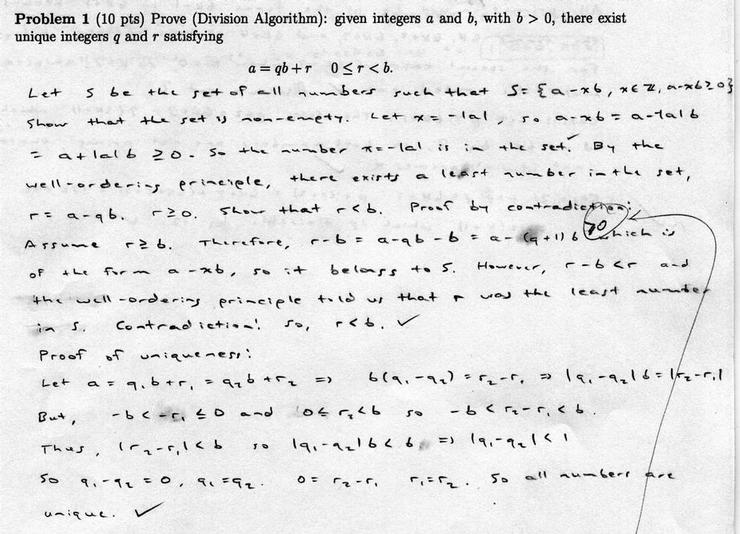 Problem 1 (10 pts) Prove (Division Algorithm): given integers a and b, with b > 0, there exist
unique integers q and r satisfying
a = qb + r   0 ≤ r < b.
Let S be the set of all numbers such that S = {a-xb, x∈ℤ, a-xb≥0}
Show that the set is non-empty. Let x = -|a|, so a-xb = a-|a|b
= a+|a|b ≥0. So the number x=-|a| is in the set. ✓ By the
well-ordering principle, there exists a least number in the set,
r = a-qb. r≥0. Show that r<b. Proof by contradiction:
Assume r≥b. Therefore, r-b = a-qb-b = a-(q+1)b ≥0 which is
of the form a-xb, so it belongs to S. However, r-b<r and
the well-ordering principle told us that r was the least number
in S. Contradiction! So, r<b. ✓
Proof of uniqueness:
Let a = q₁b+r₁ = q₂b+r₂ => b(q₁-q₂) = r₂-r₁ => |q₁-q₂|b = |r₂-r₁|
But, -b < -r₁ ≤ 0 and 0 ≤ r₂ < b so -b < r₂-r₁ < b.
Thus, |r₂-r₁| < b so |q₁-q₂|b < b => |q₁-q₂| < 1
So q₁-q₂ = 0, q₁=q₂. 0 = r₂-r₁ r₁=r₂. So all numbers are
unique. ✓